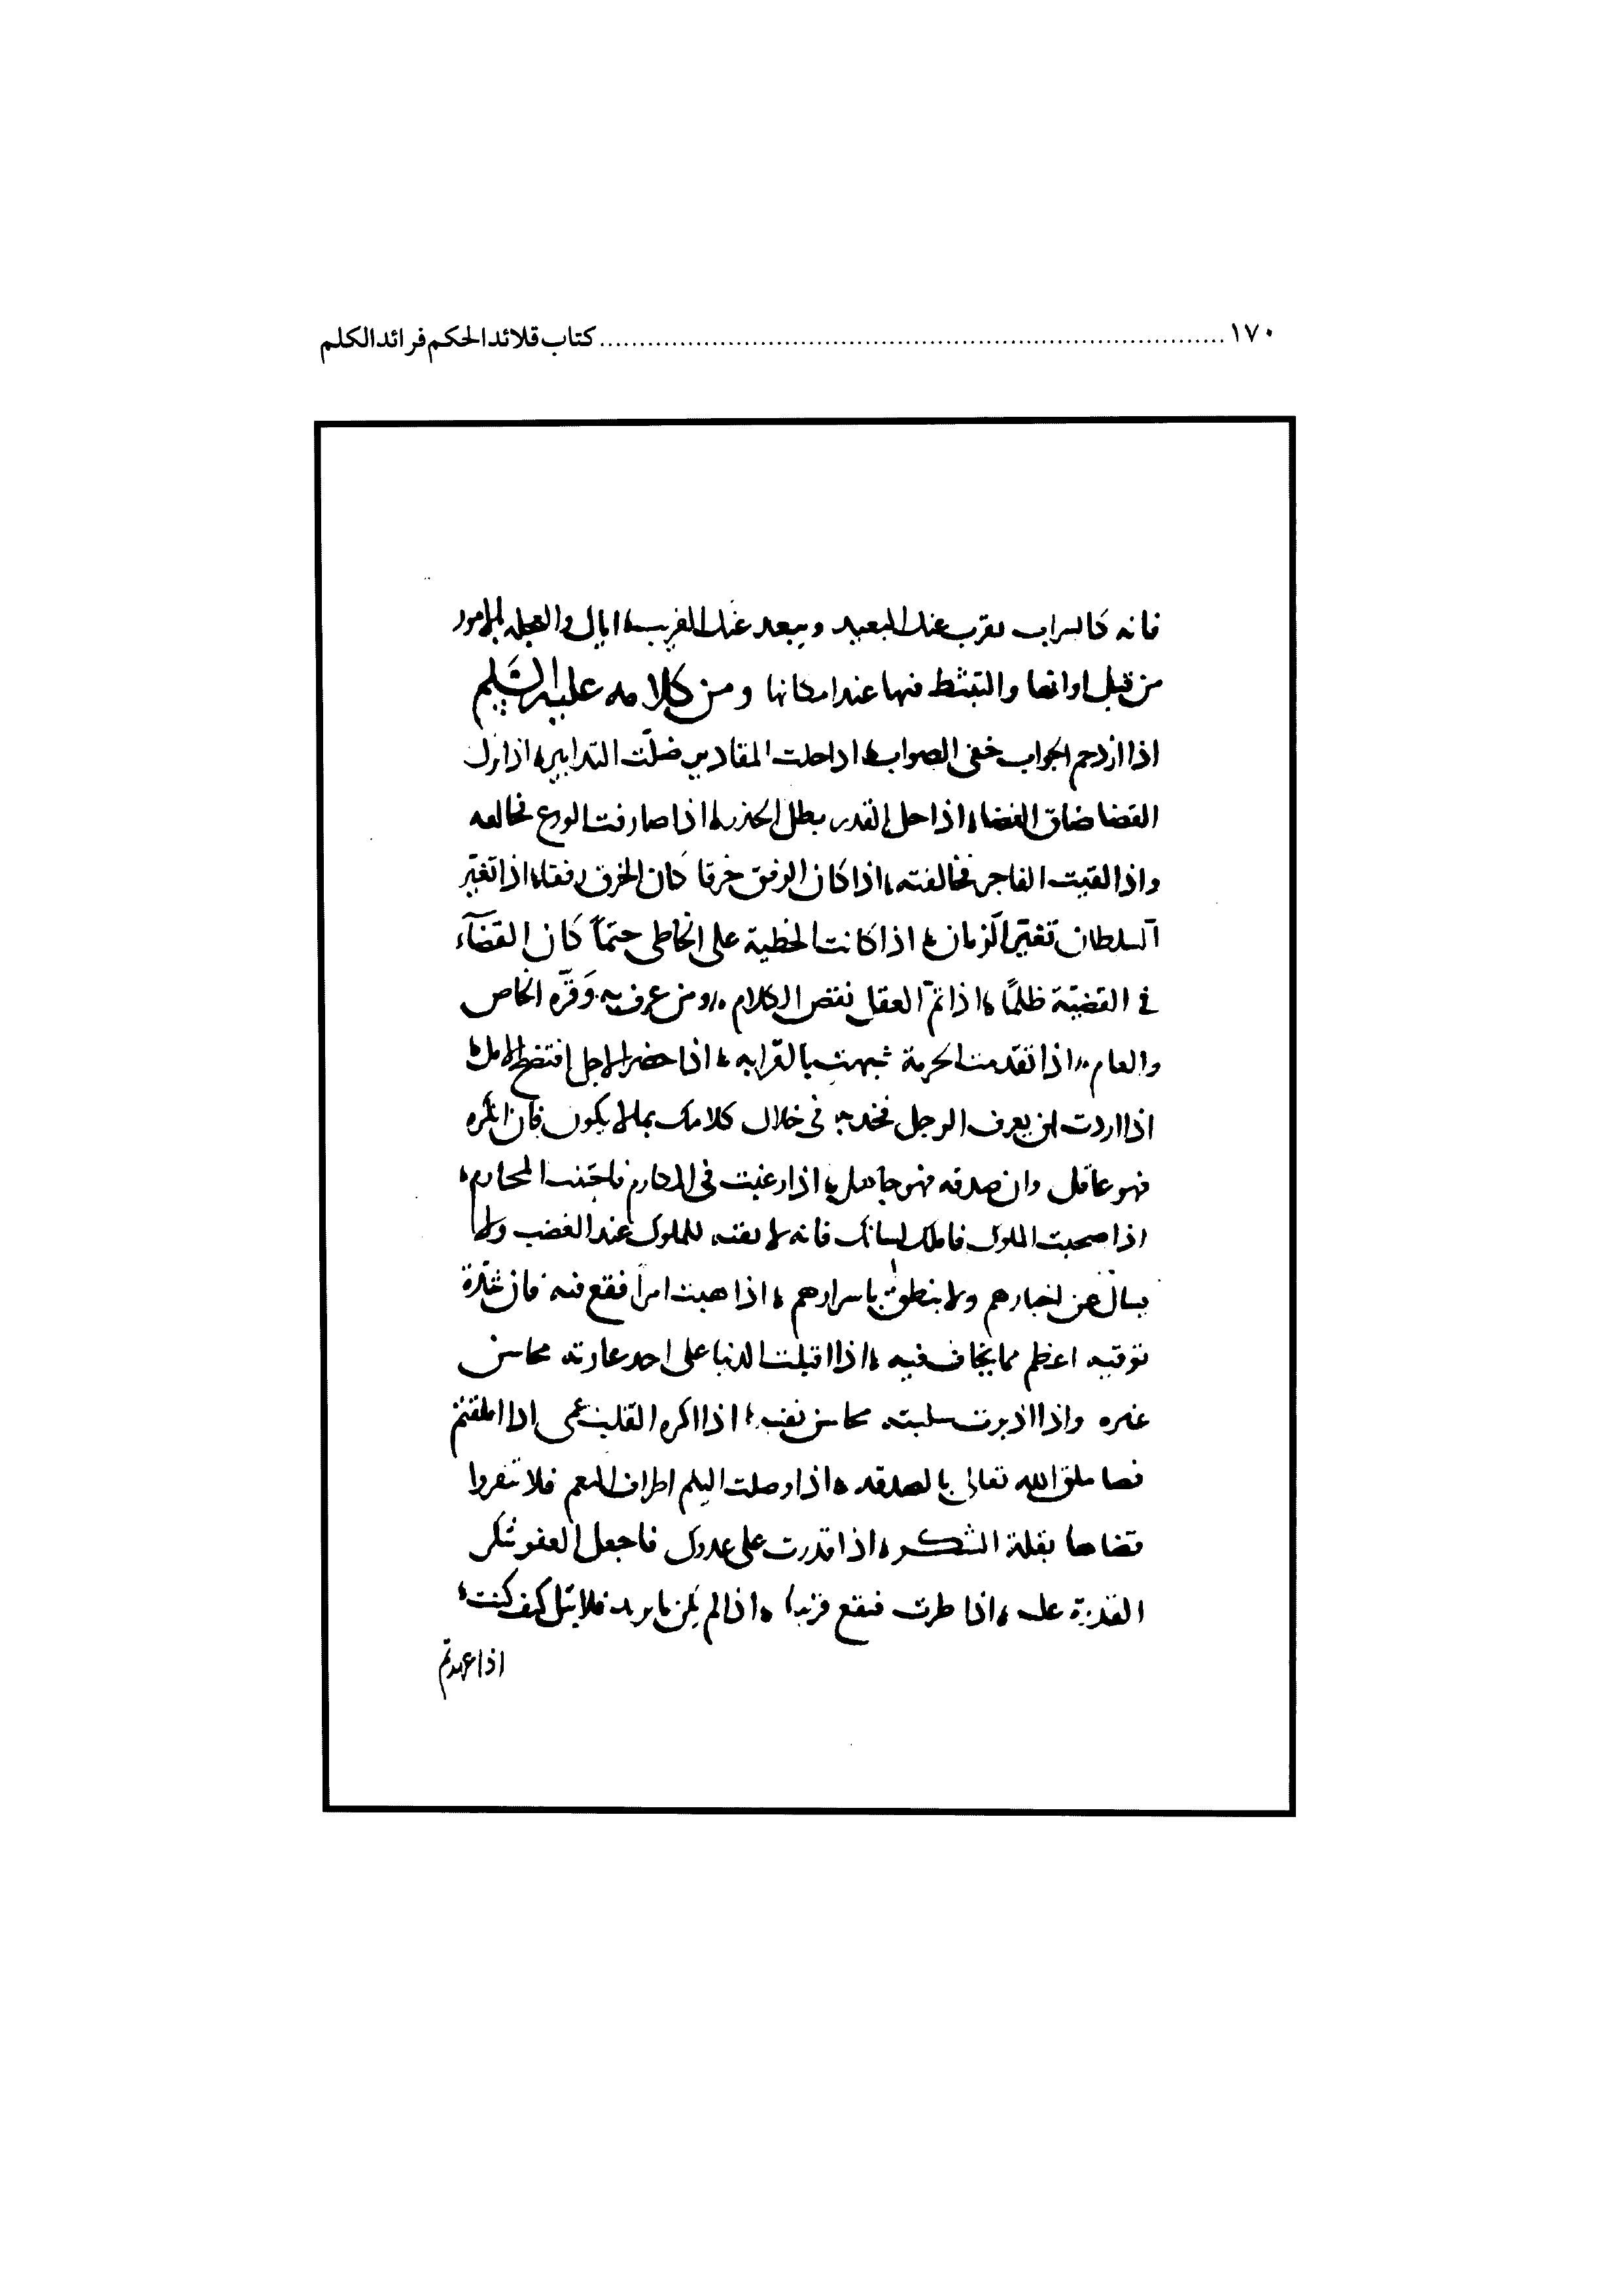 ١٧٠ ........ كتاب قلائد الحكم فرائد الكلم
فانه كالسراب يقرب عنك البعيد ويبعد عنك القريب اياك والعجلة بالامور
من قبل اوانها والتثبط فيها عند امكانها ومن كلامه عليه السلم
اذا ازدحم الجواب خفى الصواب اذا حلت المقادير ضلّت التدابير اذا نزل
القضا ضاق الفضا اذا حل القدر بطل الحذر اذا صادفت الورع فخالصه
واذا لقيت الفاجر فخالفته اذا كان الرفق خرقا كان الخرق رفقا اذا تغيّر
السلطان تغيّر الزمان اذا كانت الخطية على الخاطى حتماً كان القضآء
في القضيّة ظلمًا اذا تمّ العقل نقص الكلام ومن عرف به وَقّره الخاص
والعام اذا تقدمت الحرمة شبهت بالقرابه اذا حضر الاجل افتضح الامل
اذا اردت ان يعرف الرجل فخدثه في خلال كلامك بما لا يكون فان انكره
فهو عاقل وان صدقه فهو جاهل اذا رغبت في المكارم فاجتنب المحارم
اذا صحبت الملوك فاملك لسانك فانه لا بقيه للملوك عند الغضب ولا
يسال عن اخبارهم ولا ينطق باسرارهم اذا هبت امراً فقع فيه فان شدّة
توقيه اعظم مما يخاف فيه اذا اقبلت الدنيا على احد عارته محاسن
غيره واذا ادبرت سلبته محاسن نفسه اذا اكره القلب عمى اذا املقتم
فصاملق الله تعالى بالصدقه اذا وصلت اليكم اطراف النعم فلا تنفروا
قضاها بقلة الشكر اذا قدرت على عدوك فاجعل العفو شكر
القدرة عليه اذا طرت فقع قريبا اذا لم يكن ما يريد فلا تبل كيف كنت
اذا عهدتم